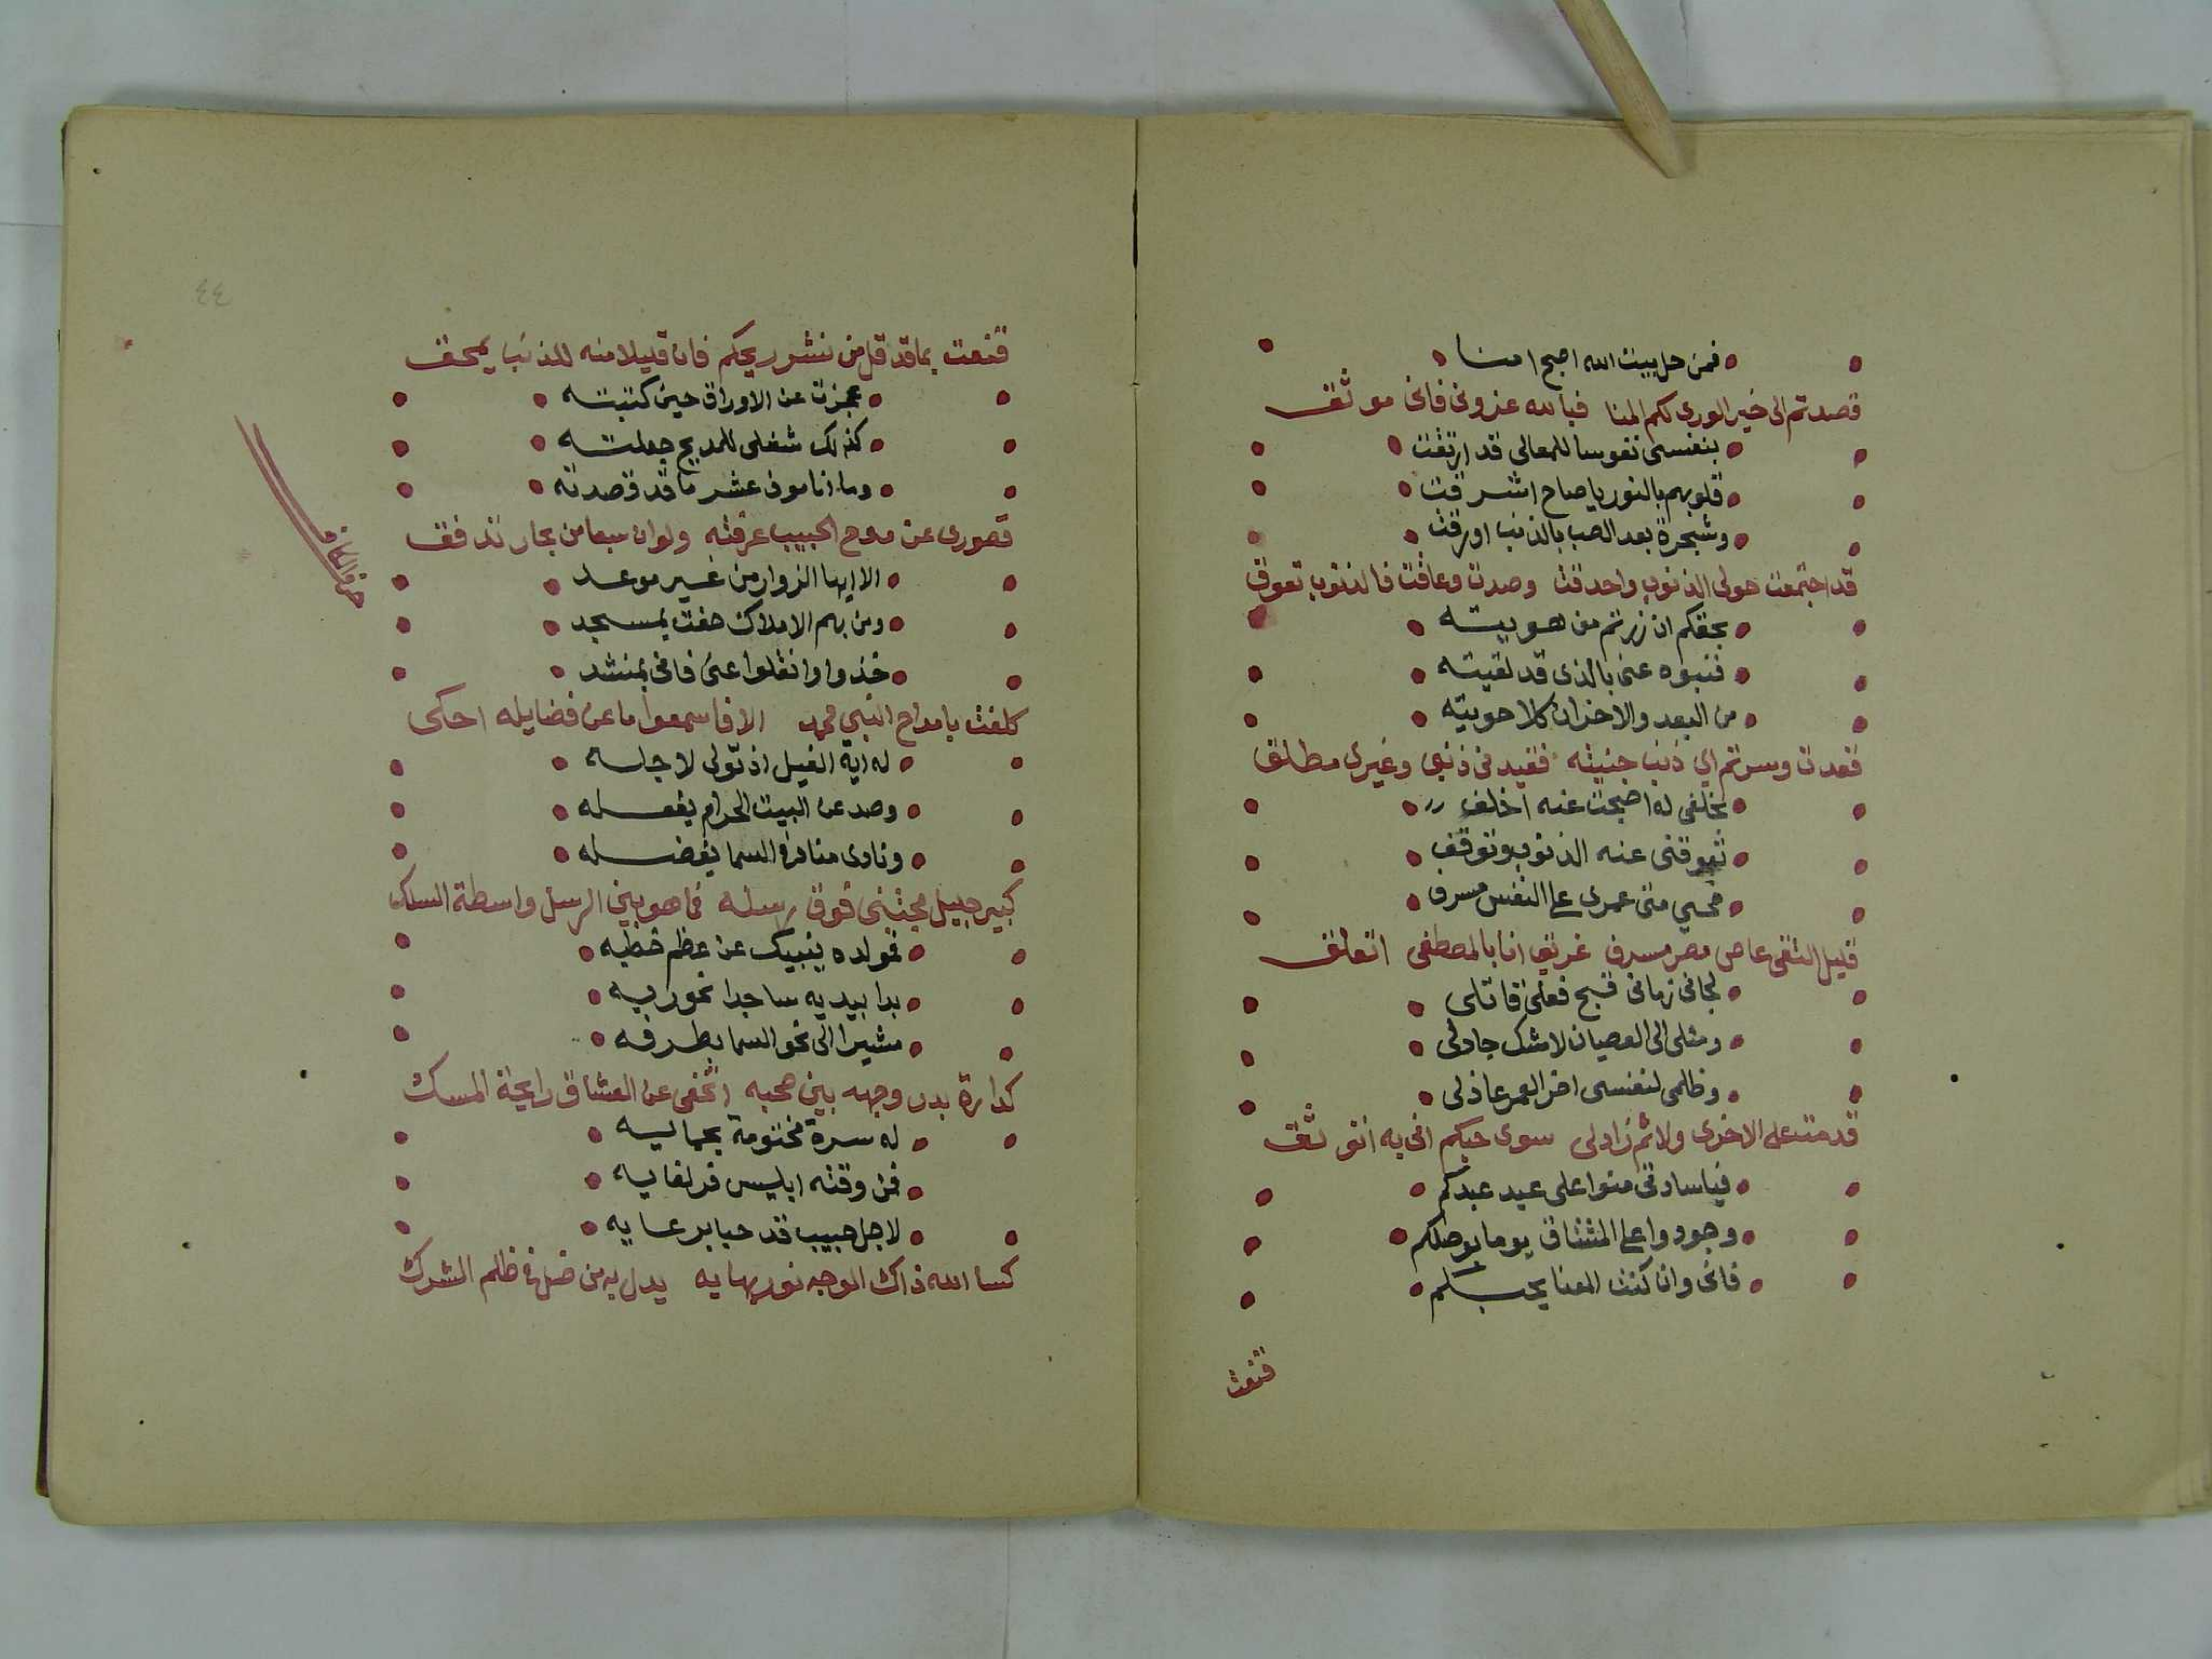 فمن حل ببيت الله اصبح امنا
قصدتم الى خير الورى لكم المنا فبالله عذرونى فانى موثق
بنفسى نفوسا للمعالى قد ارتقت
قلوبهم بالنور يا صاح اشرقت
وشجرة بعد الصب بالذنب اورقت
قد اجتمعت حولى الذنوب واحدقت وصدت وعاقت فالذنوب تعوق
بحقكم ان زرتم من هويته
فنبوه عنى بالذى قد لقيته
من البعد والاحزان كلا حويته
قعدت وسرتم اي ذنب جنيته فقيد فى ذنبى وغيرى مطلق
تخلفى له اصبحت عنه اخلف
تعوقنى عنه الذنوب وتوقف
محسي منى عمرى على النفس مسرف
قليل التقى عاص مصر مسرف غريق انا بالمصطفى اتعلق
لجانى زمانى قبح فعلى قاتلى
ومثلى الى العصيان لا شك جاد لى
وظلمى لنفسى اخر العمر عاذلى
قدمت على الاخرى ولا ثم زاد لى سوى حبكم انى به اتوثق
فياسادتى منوا على عبد عبدكم
وجودوا على المشتاق يوما بوصلكم
فانى وان كنت المعنا بحبكم
قنعت
٤٤
قنعت بما قد قل من نشر ريحكم فان قليلا منه للذنب يمحق
عجزت عن الاوراق حين كتبته
كذلك شغلى للمديح جعلته
وما انا موف عشر ما قد قصدته
قصورى عن مدح الحبيب عرفته ولو ان سبعا من بحار تدفق
حرف الكاف
الا ايها الزوار من غير موعد
ومن بهم الاملاك حفت بمسجد
خذوا وانقلوا عنى فانى بمنشد
كلفت بامداح النبي محمد الا فاسمعوا ما عن فضايله احكى
له اية الفيل اذ تولى لاجله
وصد عن البيت الحرام بفعله
ونادى مناد فى السما بفضله
كبير جليل مجتبى فوق رسله فما هو بين الرسل واسطة السلك
فمولده ينبيك عن عظم خطبه
بدا بيديه ساجدا نحو ربه
مشيرا الى نحو السما بطرفه
كدارة بدر وجهه بين صحبه اتخفى عن العشاق رايحة المسك
له سرة مختومة بجماليه
فمن وقته ابليس فر لغايه
لاجل حبيب قد حبا برعايه
كسا الله ذاك الوجه نور بهايه يدل به من ضل فى ظلم الشرك